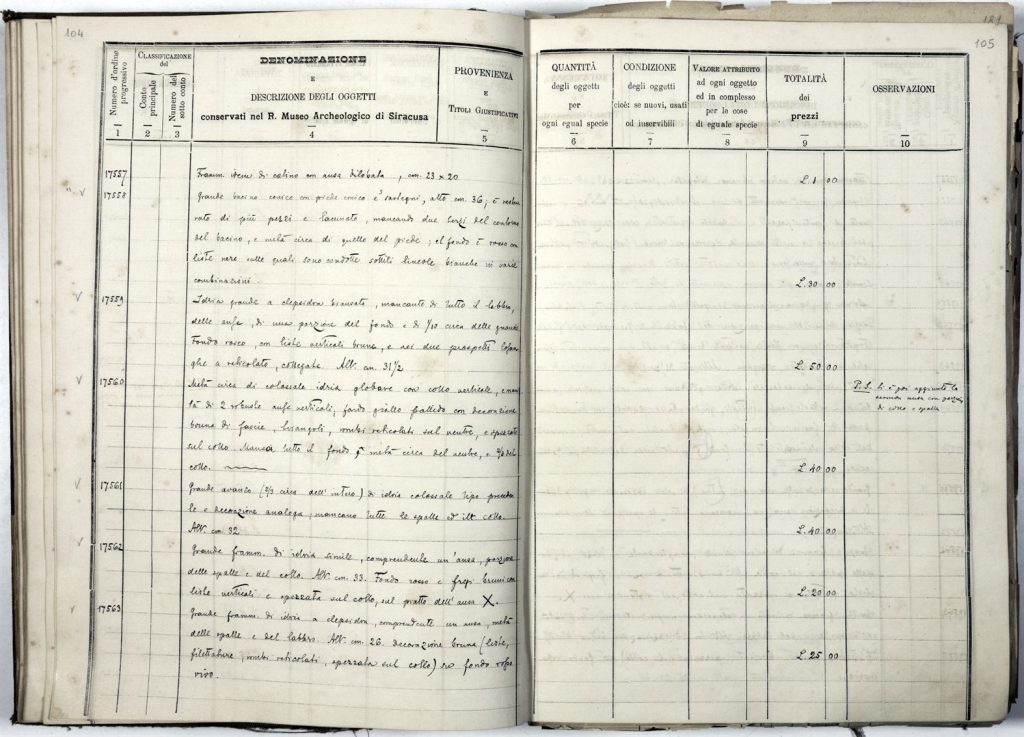 104
Numero d'ordine progressivo
Classificazione del
Conto principale
Numero del sotto conto
DENOMINAZIONE
E
DESCRIZIONE DEGLI OGGETTI
conservati nel R. Museo Archeologico di Siracusa
PROVENIENZA
E
Titoli Giustificativi
1 2 3 4 5
17557 Framm. idem di catino con ansa bilobata, cm. 23 x 20
17558 Grande bacino conico con piede conico e sostegni, alto cm. 36; è restau
rato di più pezzi e lacunato, mancando due terzi del contorno
del bacino, e metà circa di quello del piede; il fondo è rosso con
liste nere sulle quali sono condotte sottili lineole bianche in varie
combinazioni.
17559 Idria grande a clepsidra biansata, mancante di tutto il labbro,
delle anse, di una porzione del fondo e di 1/10 circa delle
Fondo rosso, con liste verticali brune, e nei due prospetti losan
ghe a reticolato, collegate. Alt. cm. 31 1/2
17560 Metà circa di colossale idria globare con collo verticale, e
di 2 robuste anse verticali; fondo giallo pallido con decorazione
bruna di fascie, triangoli, rombi reticolati sul ventre, e spezzata
sul collo. Manca tutto il fondo metà circa del ventre, e del
collo.
17561 Grande avanzo (2/3 circa dell'intero) di idria colossale tipo preceden
te e decorazione analoga; mancano tutte le spalle ed il collo.
Alt. cm. 32
17562 Grande framm. di idria simile, comprendente un'ansa, porzione
delle spalle e del collo. Alt. cm. 33. Fondo rosso e fregi bruni con
liste verticali e spezzata sul collo, sul piatto dell'ansa X.
17563 Grande framm. di idria a clepsidra, comprendente un ansa, metà
delle spalle e del labbro. Alt. cm. 26. decorazione bruna (liste,
filettature, rombi reticolati, spezzata sul collo) su fondo rosso
vivo.
121
105
QUANTITÀ
degli oggetti
per
ogni egual specie
CONDIZIONE
degli oggetti
cioè: se nuovi, usati
od inservibili
Valore attribuito
ad ogni oggetto
ed in complesso
per le cose
di eguale specie
TOTALITÀ
dei
prezzi
OSSERVAZIONI
6 7 8 9 10
L. 1 00
L. 30 00
L. 50 00
P.S. Si è poi aggiunta la
seconda ansa con porzione
di collo e spalla
L. 40 00
L. 40 00
L. 20 00
L. 25 00